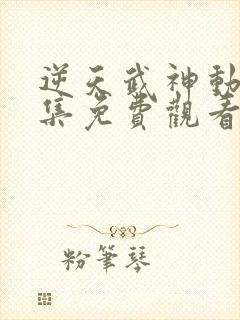 逆天武神動
集免費觀看
粉筆琴